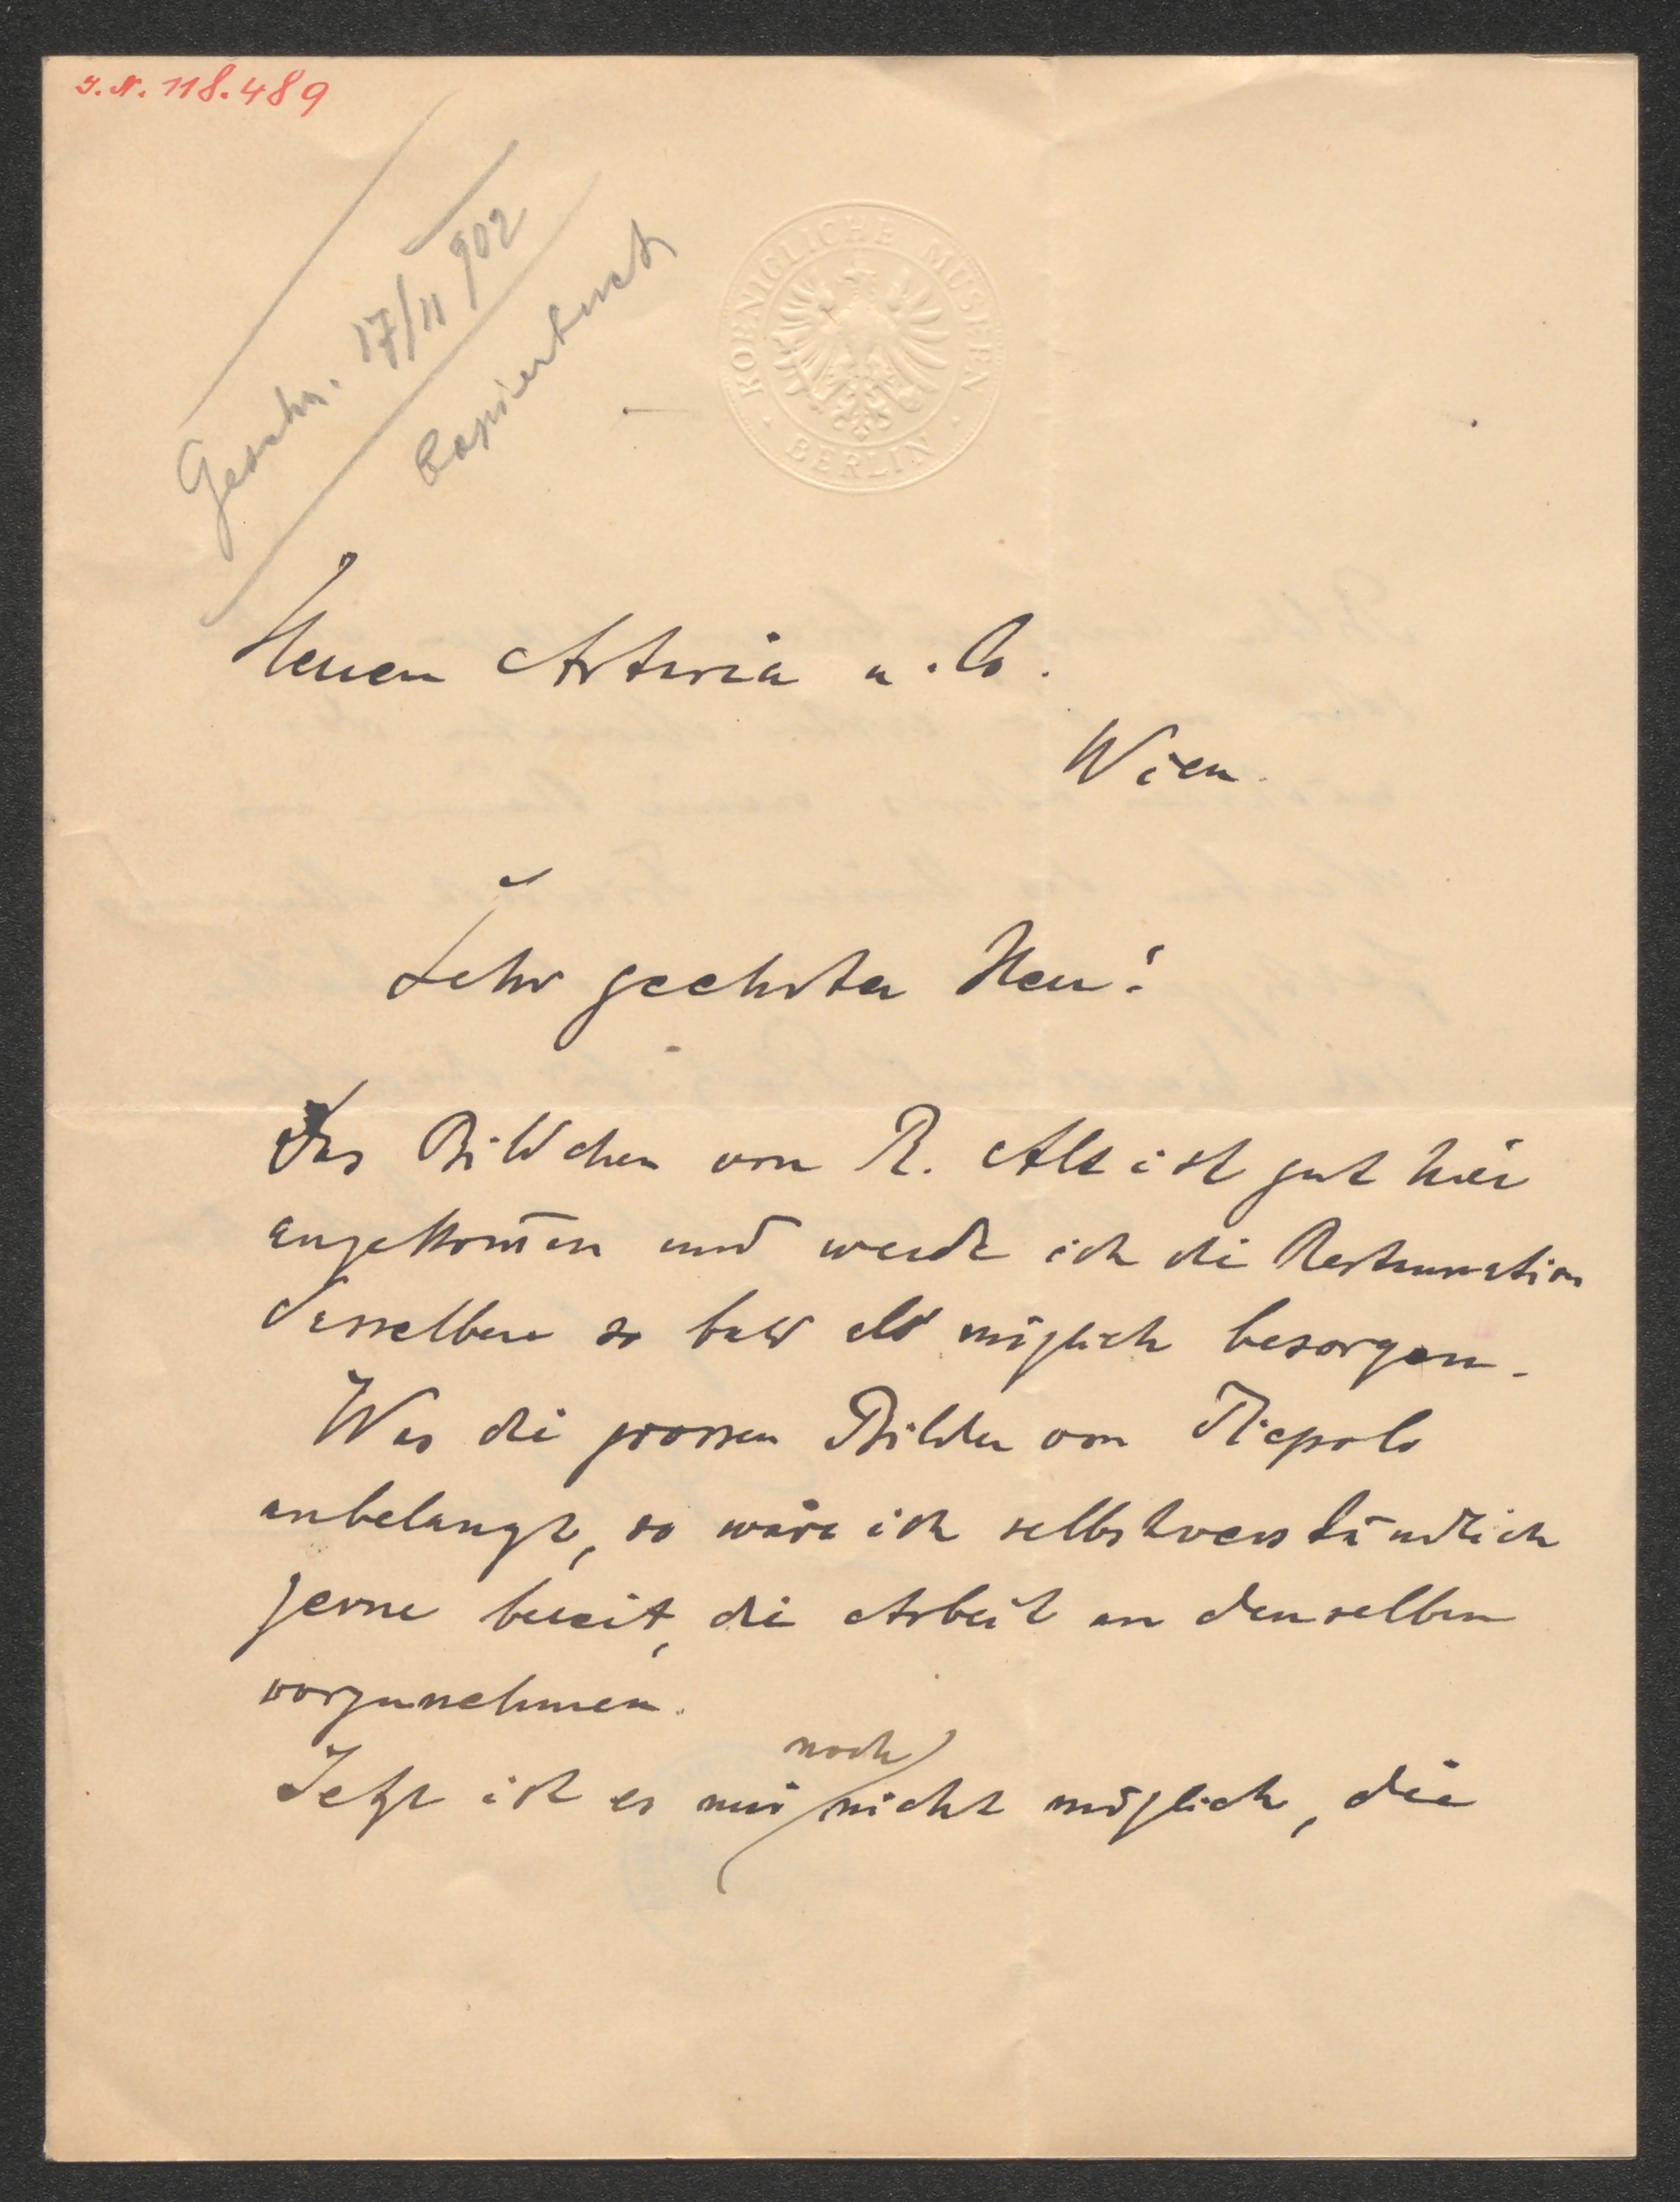 I. N. 118.489
Geschr. 17/11 902
Copierbuch
KOENIGLICHE MUSEEN
BERLIN
Herren Artaria u. Co.
Wien.
Sehr geehrter Herr!
Das Bildchen von R. Alt ist gut hier
angekom̄en und werde ich die Restauration
desselben so bald als möglich besorgen.
Was die grossen Bilder von Tiepolo
anbelangt, so wäre ich selbstverständlich
gerne bereit, die Arbeit an denselben
vorzunehmen.
noch
Jetzt ist es mir nicht möglich, die